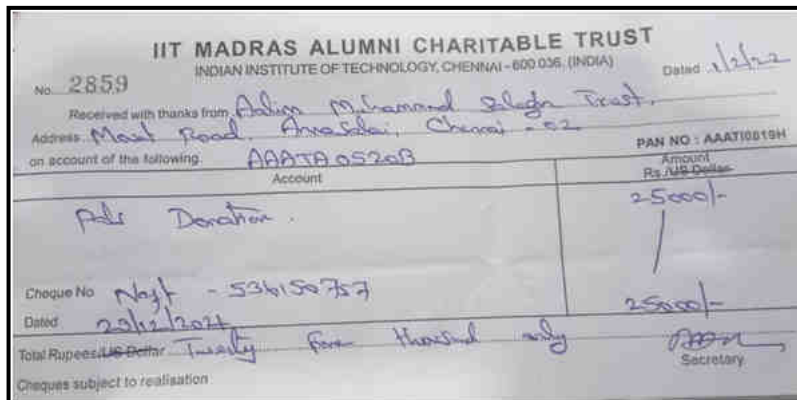 IIT MADRAS ALUMNI CHARITABLE TRUST
INDIAN INSTITUTE OF TECHNOLOGY, CHENNAI - 600 036, (INDIA)
No. 2859
Dated 1/2/22
Received with thanks from Aalim Muhammed Salegh Trust,
Address Mount Road, Annasalai, Chennai - 02
on account of the following. AAATA0520B
PAN NO : AAATI0819H
Account
Amount
Rs./US Dollar
Pals Donation.
25000/-
Cheque No Neft - 536150757
Dated 29/12/2021
25000/-
Total Rupees/US Dollar Twenty five thousand only
Secretary
Cheques subject to realisation